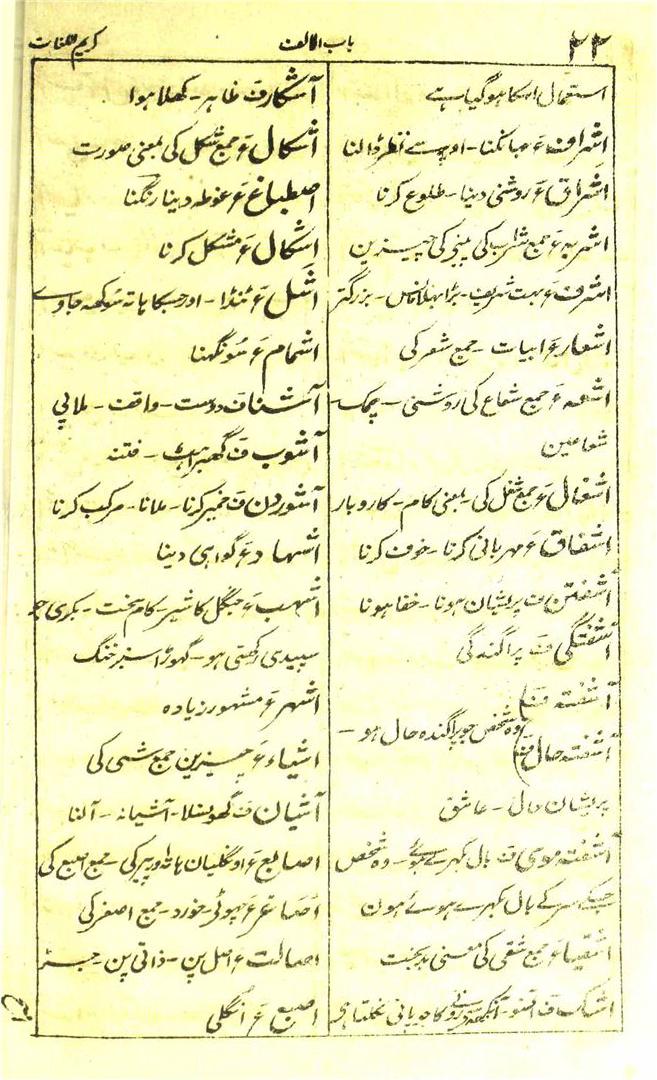 ۲۲ باب الالف کریم اللغات
استعمال اسکا ہوگیا ہے
اشراف ع جہانکنا۔ اوپر سے نظر ڈالنا
اشراق ع روشنی دینا۔ طلوع کرنا
اشربہ ع جمع شراب کی پینے کی چیزین
اشرف ع بہت شریف۔ بڑا بھلا مانس۔ بزرگتر
اشعار ع ابیات۔ جمع شعر کی
اشعہ ع جمع شعاع کی روشنی۔ چمک۔
شعاعین
اشغال ع جمع شغل کی۔ بمعنی کام۔ کاروبار
اشفاق ع مہربانی کرنا۔ خوف کرنا
آشفتن ف پریشان ہونا۔ خفا ہونا
آشفتگی ف پراگندگی
آشفتہ ف
وہ شخص جو پراگندہ حال ہو۔
آشفتہ حال ف
پریشان حال۔ عاشق
آشفتہ موی ف بال بکہرے ہوئے۔ وہ شخص
جسکے سر کے بال بکہرے ہوئے ہون
اشقیا ع جمع شقی کی معنی بدبخت
اشک ف آنسو۔ آنکھ سے رونے کا جو پانی نکلتا ہی
آشکار ف ظاہر۔ کھلا ہوا
اشکال ع جمع شکل کی بمعنی صورت
اصطباغ ع غوطہ دینا رنگنا
اشکال ع مشکل کرنا
اشل ع ٹنڈا۔ اور جسکا ہاتہ سوکھہ جاوے
اشمام ع سونگہنا
آشنا ف دوست۔ واقف۔ ملاپی
آشوب ف گھبراہٹ۔ فتنہ
آشوردن ف خمیر کرنا۔ ملانا۔ مرکب کرنا
اشہاد ع گواہی دینا
اشہب ع جنگل کا شیر۔ کام سخت۔ بکری جو
سپیدی رکھتی ہو۔ گھوڑا سبز خنگ
اشہر ع مشہور زیادہ
اشیاء ع چیزین جمع شی کی
آشیان ف گھونسلا۔ آشیانہ۔ آلنا
اصابع ع اونگلیان ہاتہ اور پیر کی۔ جمع اصبع کی
اصاغر ع چھوٹے۔ خورد۔ جمع اصغر کی
اصالت ع اصل پن۔ ذاتی پن۔ جڑ
اصبع ع انگلی